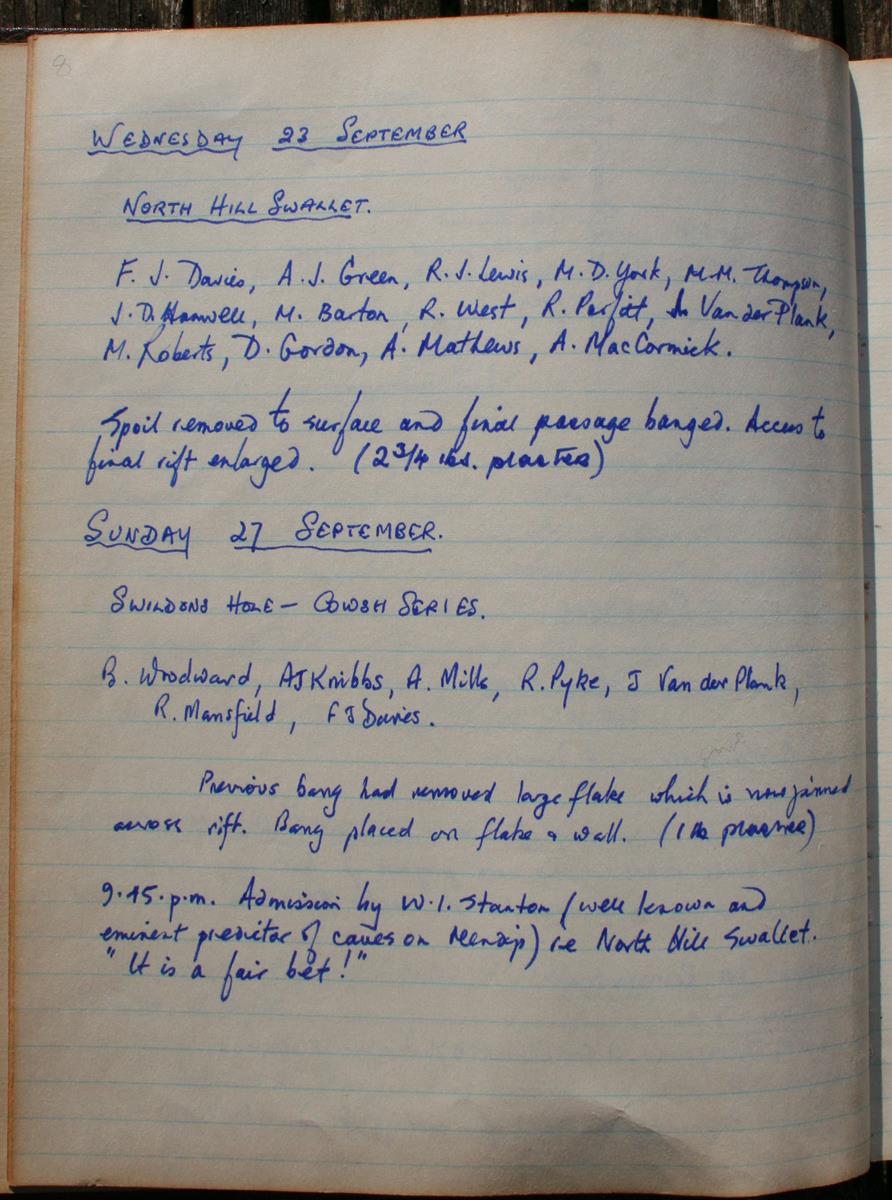 8
WEDNESDAY 23 SEPTEMBER
NORTH HILL SWALLET.
F. J. Davies, A. J. Green, R. J. Lewis, M. D. York, M. M. Thompson,
J. D. Hanwell, M. Barton, R. West, R. Parfitt, Van der Plank,
M. Roberts, D. Gordon, A. Mathews, A. MacCormick.
Spoil removed to surface and final passage banged. Access to
final rift enlarged. (2 3/4 lbs. plaster)
SUNDAY 27 SEPTEMBER.
SWILDONS HOLE - COWSH SERIES.
B. Woodward, AJ Knibbs, A. Mills, R. Pyke, J Van der Plank,
R. Mansfield, F J Davies.
Previous bang had removed large flake which is now jammed
across rift. Bang placed on flake & wall. (1 lb plaster)
9.45.p.m. Admission by W. I. Stanton (well known and
eminent predictor of caves on Mendip) i.e North Hill Swallet.
"It is a fair bet!"